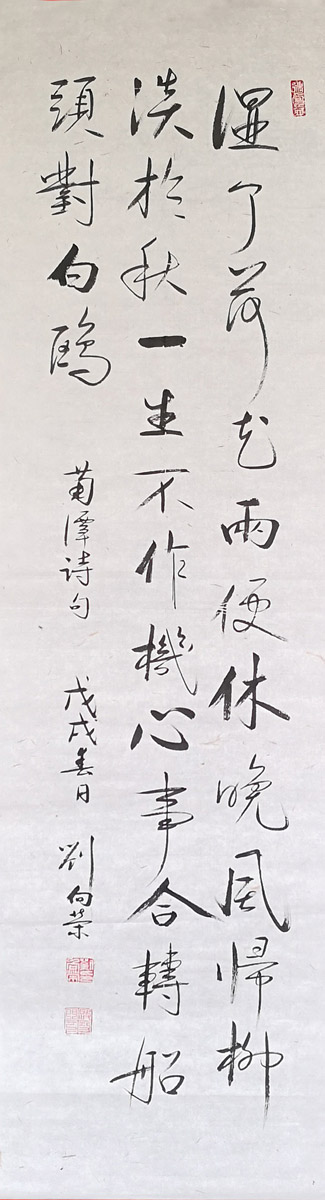 湿了荷花雨便休晚風歸柳
淡於秋一生不作機心事合轉船
頭對白鷗
菊潭詩句 戊戌春日 劉向榮